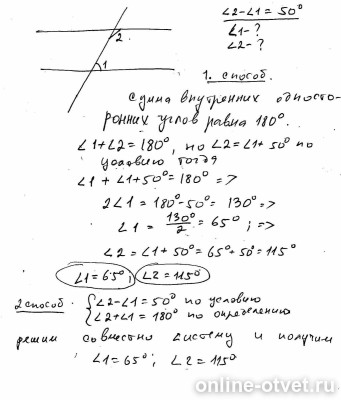 ∠2-∠1=50°
∠1-?
∠2-?
2
1
1. способ.
Сумма внутренних односто-
ронних углов равна 180°.
∠1+∠2=180°, но ∠2=∠1+50° по
условию тогда
∠1+∠1+50°=180° =>
2∠1=180°-50°=130° =>
∠1=130°/2=65°; =>
∠2=∠1+50°=65°+50°=115°
∠1=65°; ∠2=115°
2 способ. {∠2-∠1=50° по условию
{∠2+∠1=180° по определению
решим совместно систему и получим
∠1=65°; ∠2=115°
online-otvet.ru